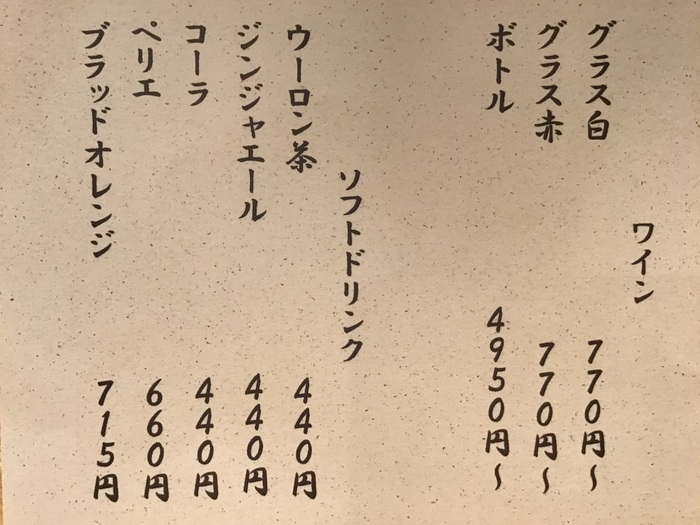 ワイン
グラス白 770円〜
グラス赤 770円〜
ボトル 4950円〜
ソフトドリンク
ウーロン茶 440円
ジンジャエール 440円
コーラ 440円
ペリエ 660円
ブラッドオレンジ 715円